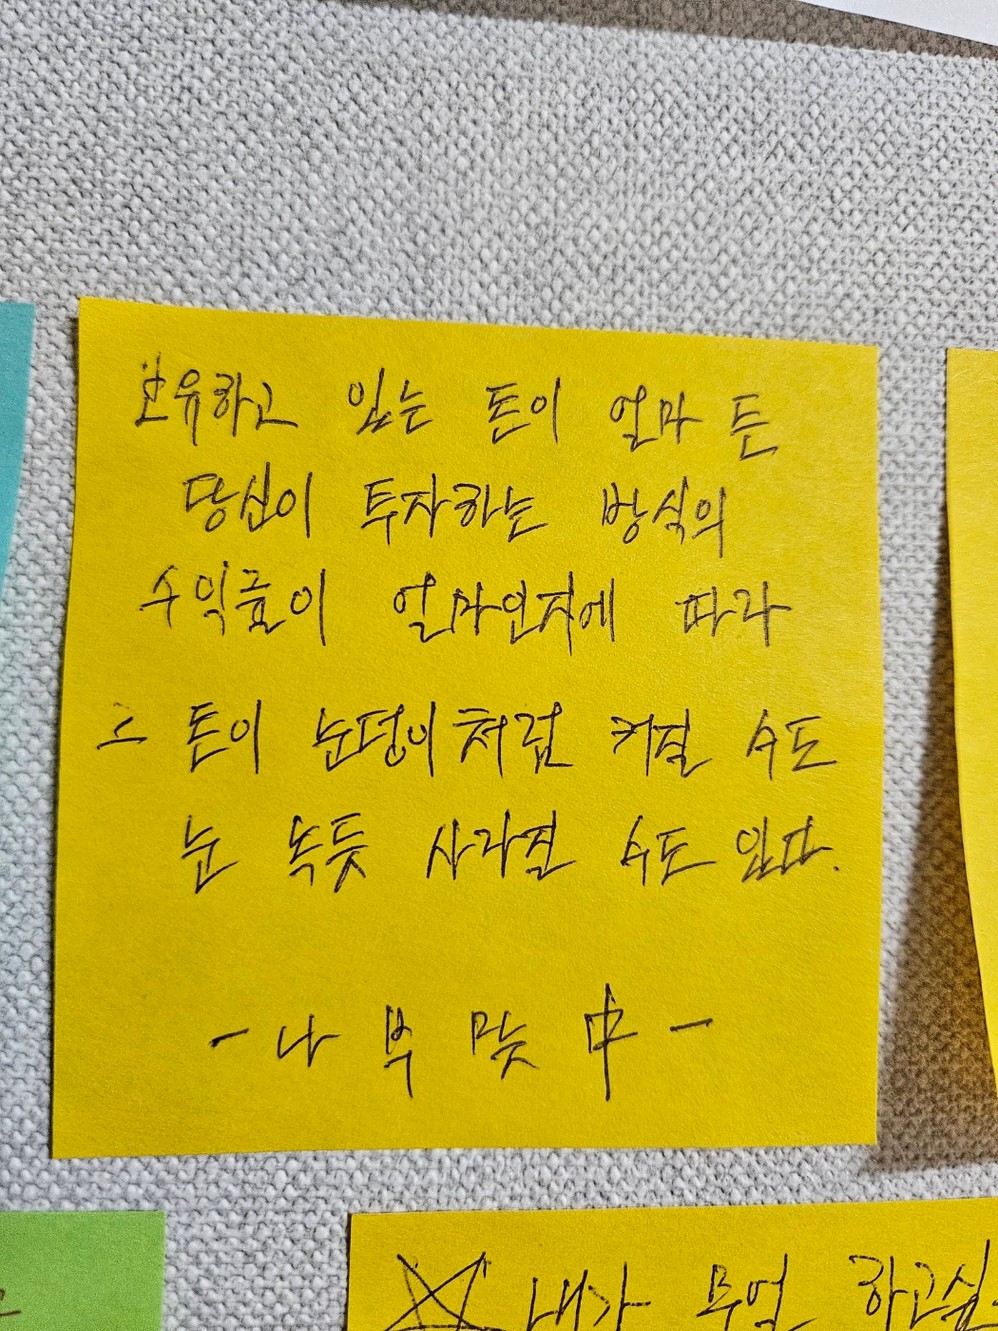 보유하고 있는 돈이 얼마 든
당신이 투자하는 방식의
수익률이 얼마인지에 따라
그 돈이 눈덩이처럼 커질 수도
눈 녹듯 사라질 수도 있다.
- 나 부 맞 中 -
내가 무얼 하고싶